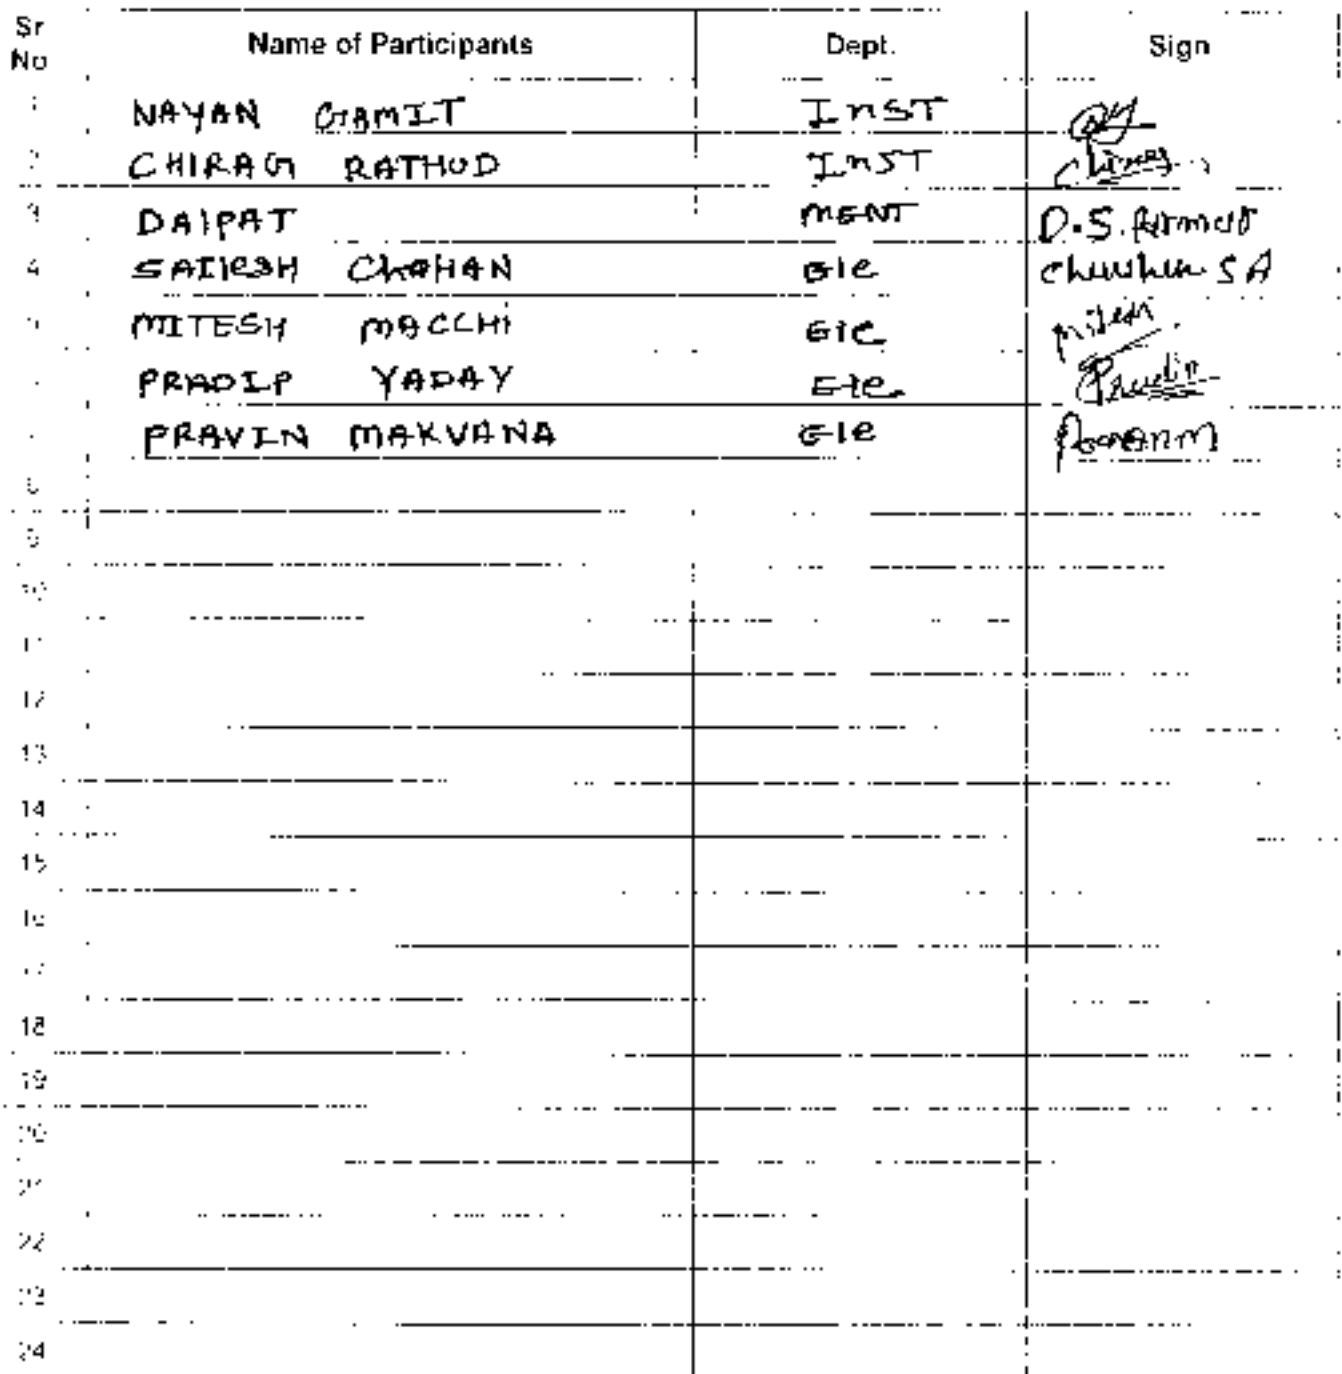 Sr No Name of Participants Dept. Sign
1 NAYAN GAMIT INST
2 CHIRAG RATHOD INST Chirag
3 DAIPAT MENT D.S.
4 SAILESH CHOHAN E1e SA
5 MITESH MACCHI E1e Mitesh
PRADIP YADAV E1e Pradip
PRAVIN MAKVANA E1e
8
9
10
11
12
13
14
15
16
17
18
19
20
21
22
23
24